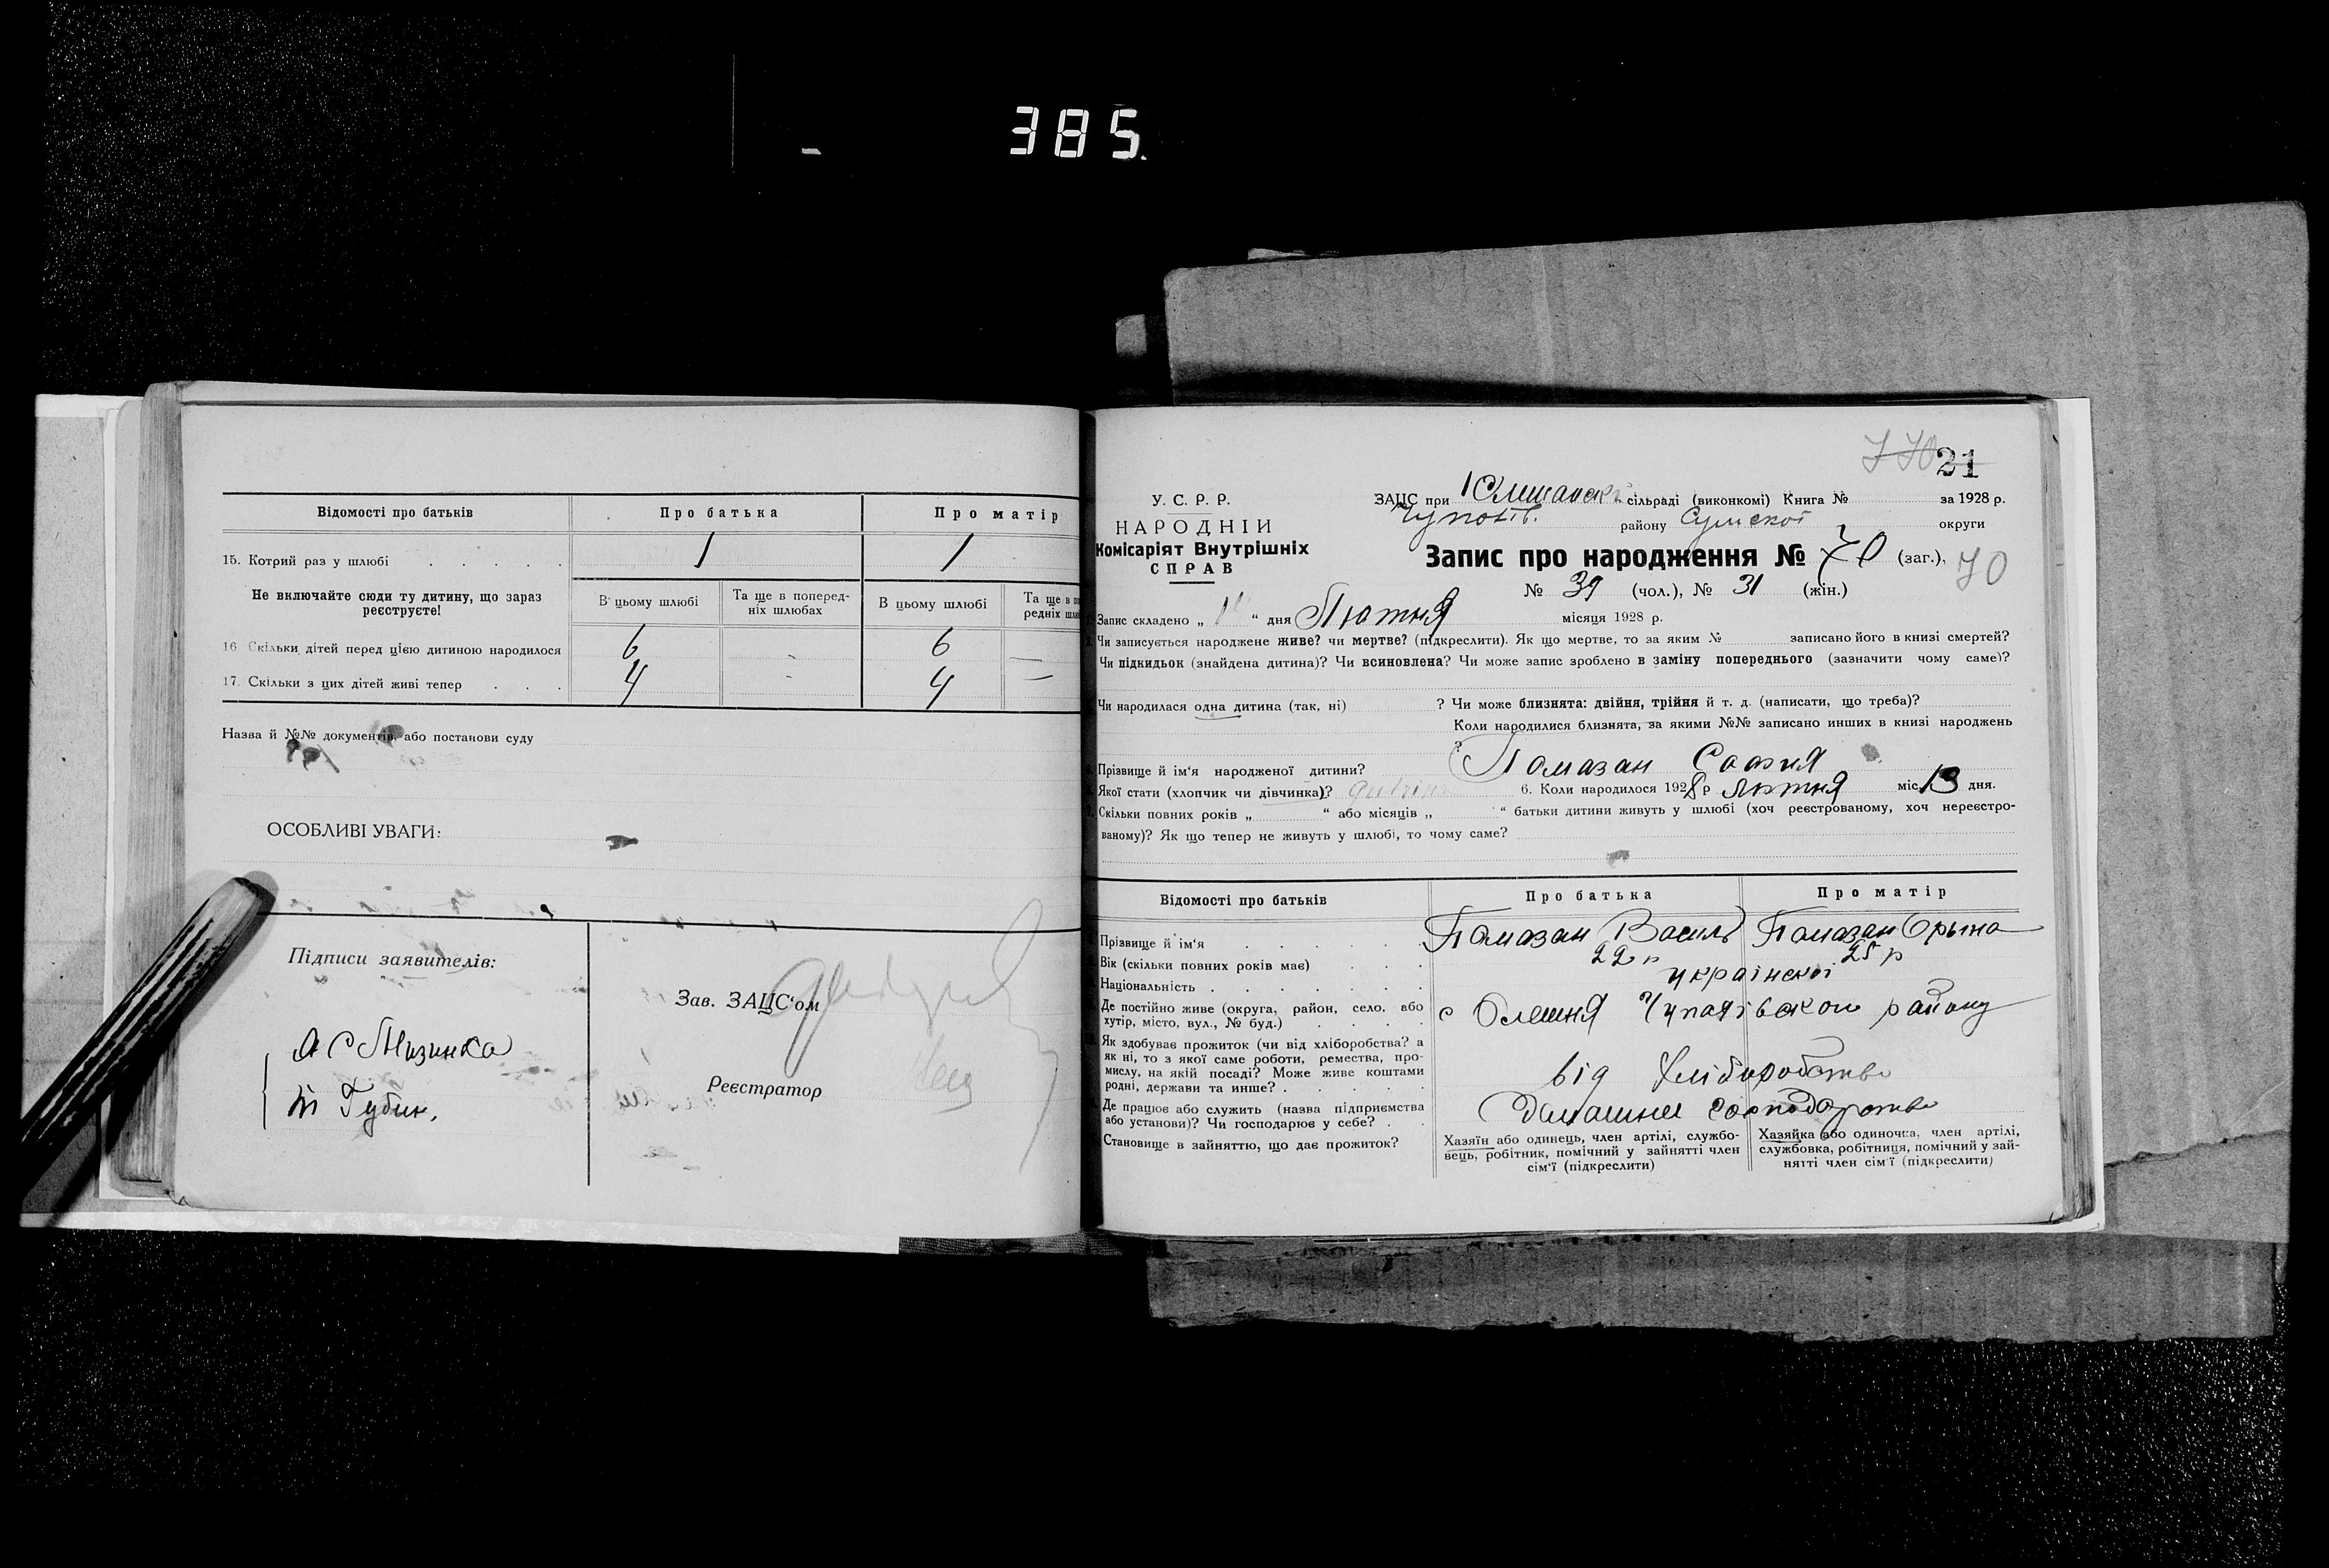 385.
Відомості про батьків
Про батька
Про матір
15. Котрий раз у шлюбі
1
1
Не включайте сюди ту дитину, що зараз реєструєте!
В цьому шлюбі
Та ще в поперед-
ніх шлюбах
В цьому шлюбі
Та ще в по
редніх шлю
16 Скільки дітей перед цією дитиною народилося
6
-
6
—
17. Скільки з цих дітей живі тепер
4
-
4
—
Назва й №№ документів, або постанови суду
ОСОБЛИВІ УВАГИ:
Підписи заявителів:
Мизинка
Губин.
Зав. ЗАЦС‘ом
Реєстратор
770 21
У. С. Р. Р.
НАРОДНІЙ
Комісаріят Внутрішніх
СПРАВ
ЗАЦС при сільраді (виконкомі) Книга № за 1928 р.
району Сумской округи
Запис про народження № 70 (заг.), 70
№ 39 (чол.), № 31 (жін.)
Запис складено „ “ дня Лютня місяця 1928 р.
Чи записується народжене живе? чи мертве? (підкреслити). Як що мертве, то за яким № записано його в книзі смертей?
Чи підкидьок (знайдена дитина)? Чи всиновлена? Чи може запис зроблено в заміну попереднього (зазначити чому саме)?
Чи народилася одна дитина (так, ні) ? Чи може близнята: двійня, трійня й т. д. (написати, що треба)?
Коли народилися близнята, за якими №№ записано инших в книзі народжень
?
Прізвище й ім‘я народженої дитини? Помазан София
Якої стати (хлопчик чи дівчинка)? 6. Коли народилося 1928 р Лютня міс 13 дня.
Скільки повних років „ “ або місяців „ “ батьки дитини живуть у шлюбі (хоч реєстрованому, хоч нереєстро-
ваному)? Як що тепер не живуть у шлюбі, то чому саме?
Відомості про батьків
Про батька
Про матір
Прізвище й ім‘я
Помазан Василь
Помазан Орына
Вік (скільки повних років має)
22 р
25 р
Національність
української
Де постійно живе (округа, район, село, або
хутір, місто, вул., № буд.)
с Олешня Чупахівском району
Як здобуває прожиток (чи від хліборобства? а
як ні, то з якої саме роботи, ремества, про-
мислу, на якій посаді? Може живе коштами
родні, держави та инше?
від Хліборобства
Де працює або служить (назва підприємства
або установи)? Чи господарює у себе?
Домашнее господарство
Становище в зайняттю, що дає прожиток?
Хазяїн або одинець, член артілі, службо-
вець, робітник, помічний у зайнятті член
сім‘ї (підкреслити)
Хазяйка або одиночка, член артілі,
службовка, робітниця, помічний у зай-
нятті член сім‘ї (підкреслити)